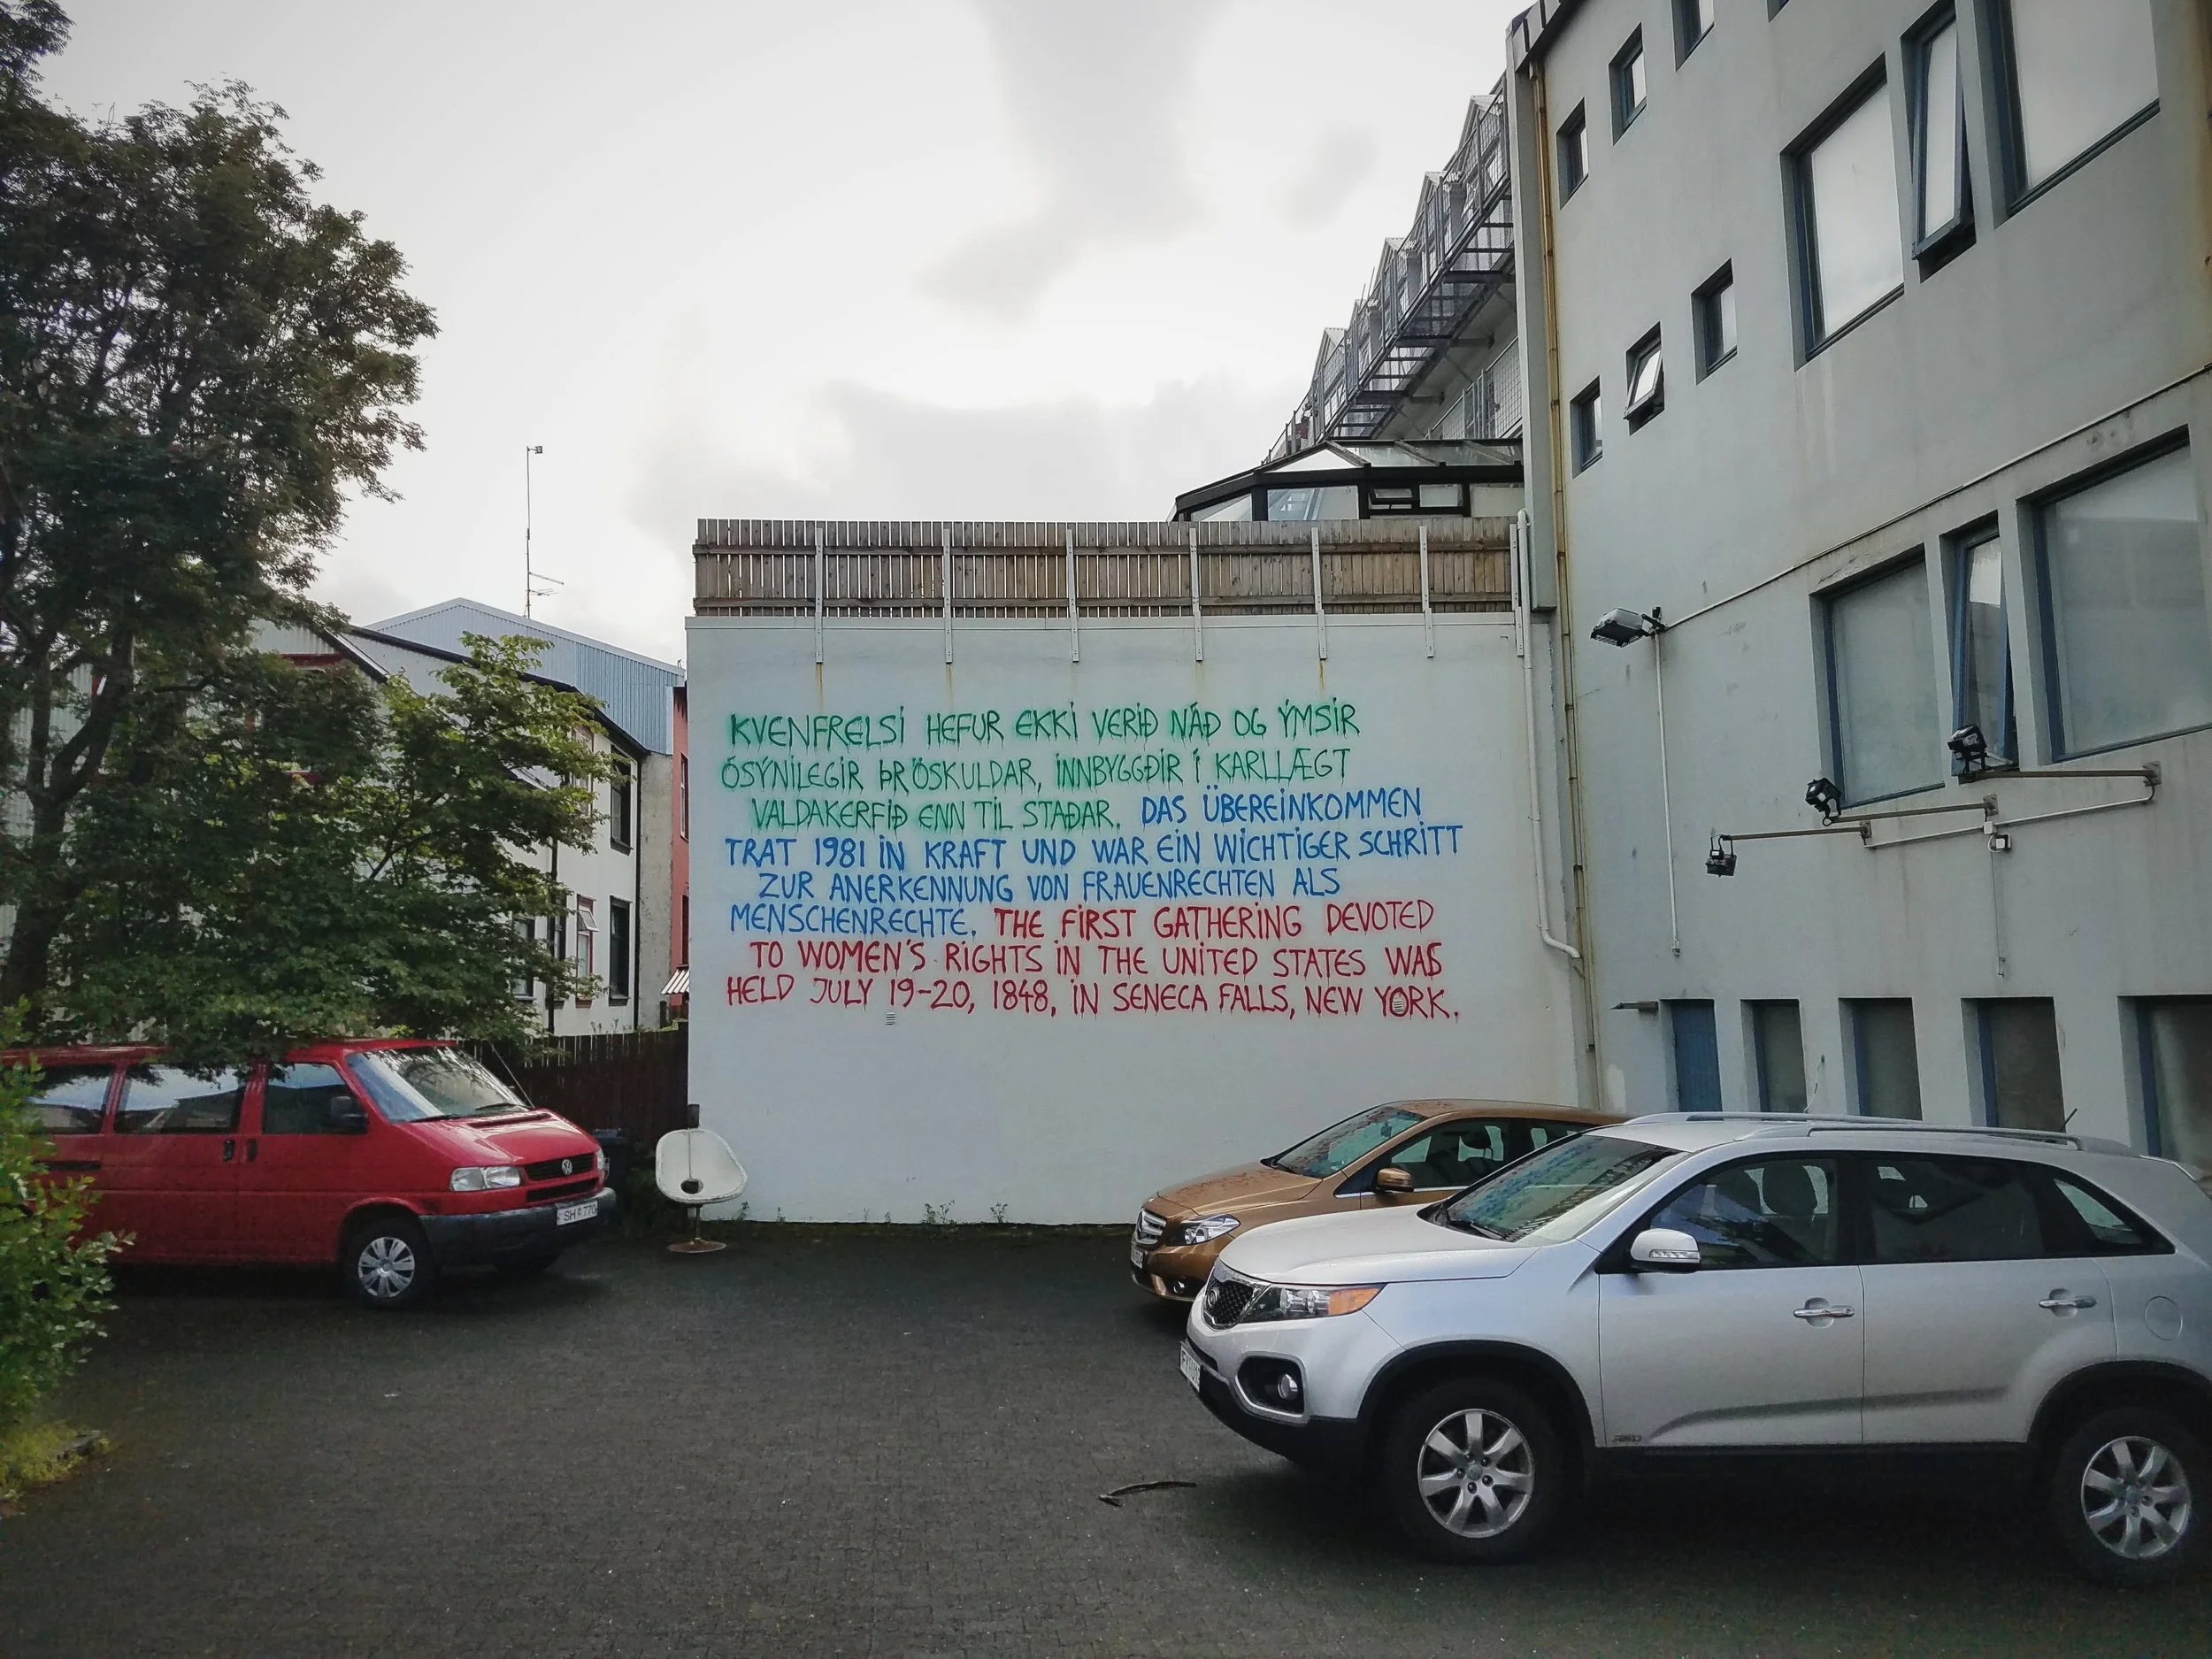 KVENFRELSI HEFUR EKKI VERIÐ NÁÐ OG ÝMSIR
ÓSÝNILEGIR ÞRÖSKULDAR, INNBYGGÐIR Í KARLLÆGT
VALDAKERFIÐ ENN TIL STAÐAR. DAS ÜBEREINKOMMEN
TRAT 1981 IN KRAFT UND WAR EIN WICHTIGER SCHRITT
ZUR ANERKENNUNG VON FRAUENRECHTEN ALS
MENSCHENRECHTE. THE FIRST GATHERING DEVOTED
TO WOMEN'S RIGHTS IN THE UNITED STATES WAS
HELD JULY 19-20, 1848, IN SENECA FALLS, NEW YORK.